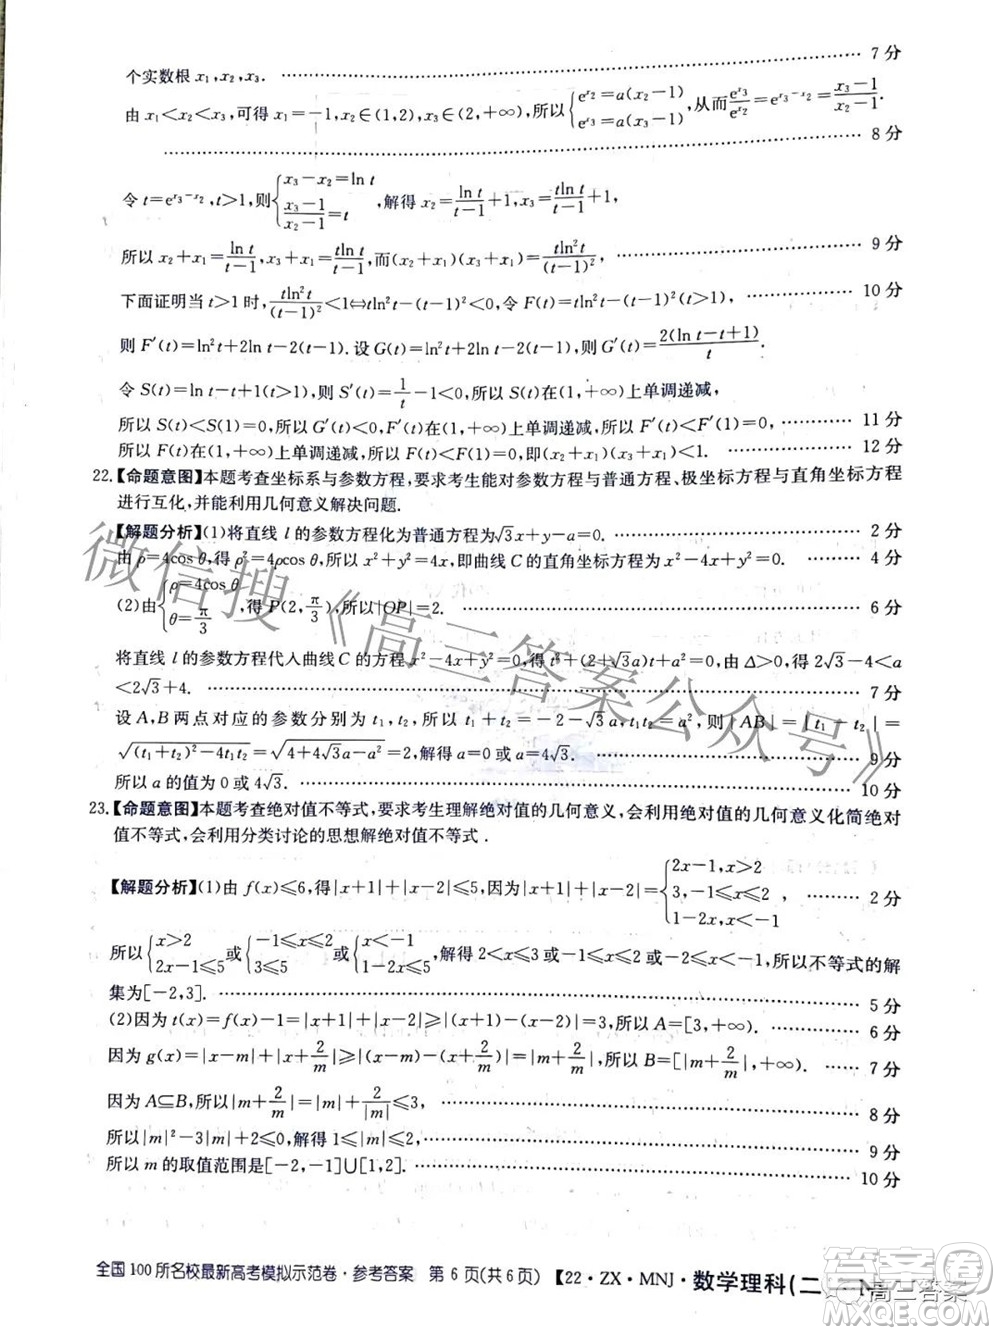 个实数根 x₁,x₂,x₃. …… 7 分
由 x₁<x₂<x₃,可得 x₁=-1,x₂∈(1,2),x₃∈(2,+∞),所以{e^{x₂}=a(x₂-1) e^{x₃}=a(x₃-1),从而e^{x₃}/e^{x₂}=e^{x₃-x₂}=(x₃-1)/(x₂-1).
…… 8 分
令 t=e^{x₃-x₂},t>1,则{x₃-x₂=ln t (x₃-1)/(x₂-1)=t,解得 x₂=ln t/(t-1)+1,x₃=tln t/(t-1)+1,
所以 x₂+x₁=ln t/(t-1),x₃+x₁=tln t/(t-1),而(x₂+x₁)(x₃+x₁)=tln²t/(t-1)², …… 9 分
下面证明当 t>1 时,tln²t/(t-1)²<1⇔tln²t-(t-1)²<0,令 F(t)=tln²t-(t-1)²(t>1), …… 10 分
则 F′(t)=ln²t+2ln t-2(t-1).设 G(t)=ln²t+2ln t-2(t-1)(t>1),则 G′(t)=2(ln t-t+1)/t.
令 S(t)=ln t-t+1(t>1),则 S′(t)=1/t-1<0,所以 S(t)在(1,+∞)上单调递减,
所以 S(t)<S(1)=0,所以 G′(t)<0,F′(t)在(1,+∞)上单调递减,所以 F′(t)<F′(1)=0, …… 11 分
所以 F(t)在(1,+∞)上单调递减,所以 F(t)<F(1)=0,即(x₂+x₁)(x₃+x₁)<1. …… 12 分
22.【命题意图】本题考查坐标系与参数方程,要求考生能对参数方程与普通方程、极坐标方程与直角坐标方程
进行互化,并能利用几何意义解决问题.
【解题分析】(1)将直线 l 的参数方程化为普通方程为√3x+y-a=0. …… 2 分
由 ρ=4cos θ,得 ρ²=4ρcos θ,所以 x²+y²=4x,即曲线 C 的直角坐标方程为 x²-4x+y²=0. …… 4 分
(2)由{ρ=4cos θ θ=π/3,得 P(2,π/3),所以|OP|=2. …… 6 分
将直线 l 的参数方程代入曲线 C 的方程 x²-4x+y²=0,得 t²+(2+√3a)t+a²=0,由 Δ>0,得 2√3-4<a
<2√3+4. …… 7 分
设 A,B 两点对应的参数分别为 t₁,t₂,所以 t₁+t₂=-2-√3a,t₁t₂=a²,则|AB|=|t₁-t₂|=
√((t₁+t₂)²-4t₁t₂)=√(4+4√3a-a²)=2,解得 a=0 或 a=4√3. …… 9 分
所以 a 的值为 0 或 4√3. …… 10 分
23.【命题意图】本题考查绝对值不等式,要求考生理解绝对值的几何意义,会利用绝对值的几何意义化简绝对
值不等式,会利用分类讨论的思想解绝对值不等式.
【解题分析】(1)由 f(x)≤6,得|x+1|+|x-2|≤5,因为|x+1|+|x-2|={2x-1,x>2 3,-1≤x≤2 1-2x,x<-1, …… 2 分
所以{x>2 2x-1≤5或{-1≤x≤2 3≤5或{x<-1 1-2x≤5,解得 2<x≤3 或-1≤x≤2 或-2≤x<-1,所以不等式的解
集为[-2,3]. …… 5 分
(2)因为 t(x)=|x+1|+|x-2|≥|(x+1)-(x-2)|=3,所以 A=[3,+∞). …… 6 分
因为 g(x)=|x-m|+|x+2/m|≥|(x-m)-(x+2/m)|=|m+2/m|,所以 B=[|m+2/m|,+∞). …… 7 分
因为 A⊆B,所以|m+2/m|=|m|+2/|m|≤3, …… 8 分
所以|m|²-3|m|+2≤0,解得 1≤|m|≤2, …… 9 分
所以 m 的取值范围是[-2,-1]∪[1,2]. …… 10 分
微信搜《高三答案公众号》
全国100所名校最新高考模拟示范卷·参考答案 第6页(共6页) 【22·ZX·MNJ·数学理科(二
高三答案
答案圈
MXQE.COM